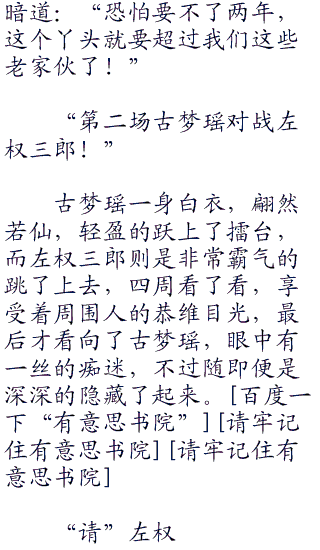 暗道：“恐怕要不了两年，
这个丫头就要超过我们这些
老家伙了！”
“第二场古梦瑶对战左
权三郎！”
古梦瑶一身白衣，翩然
若仙，轻盈的跃上了擂台，
而左权三郎则是非常霸气的
跳了上去，四周看了看，享
受着周围人的恭维目光，最
后才看向了古梦瑶，眼中有
一丝的痴迷，不过随即便是
深深的隐藏了起来。[百度一
下“有意思书院”][请牢记
住有意思书院][请牢记住有
意思书院]
“请”左权